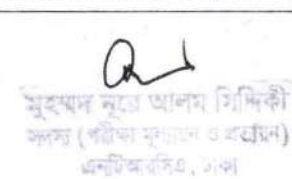 মুহম্মদ নূরে আলম সিদ্দিকী
সদস্য (পরীক্ষা মূল্যায়ন ও প্রত্যয়ন)
এনটিআরসিএ, ঢাকা